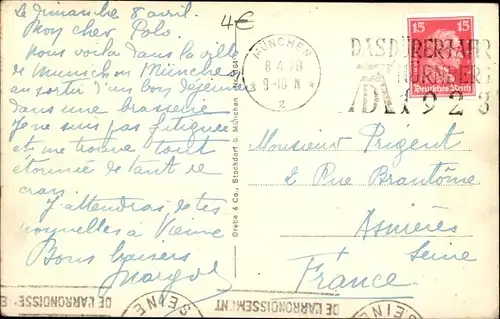 Le dimanche 8 avril
Mon cher Polo
Nous voilà dans la ville
de Munich ou München
au sortir d'un bon déjeuner
dans une brasserie
Je ne suis pas fatiguée
et me trouve tout
étonnée de tant de
cran.
J'attendrai de tes
nouvelles à Vienne
Bons baisers
Margot
4€
Grebe & Co., Stockdorf b. München
MÜNCHEN
8.4.28
9-10 N
2
DAS DÜRERJAHR
NÜRNBERG
1928
15 15
Deutsches Reich
Monsieur Prigent
2 Rue Brantôme
Asnières
Seine
France
DE L'ARRONDISSE
SEINE
DE L'ARRONDISSEMENT
SEINE